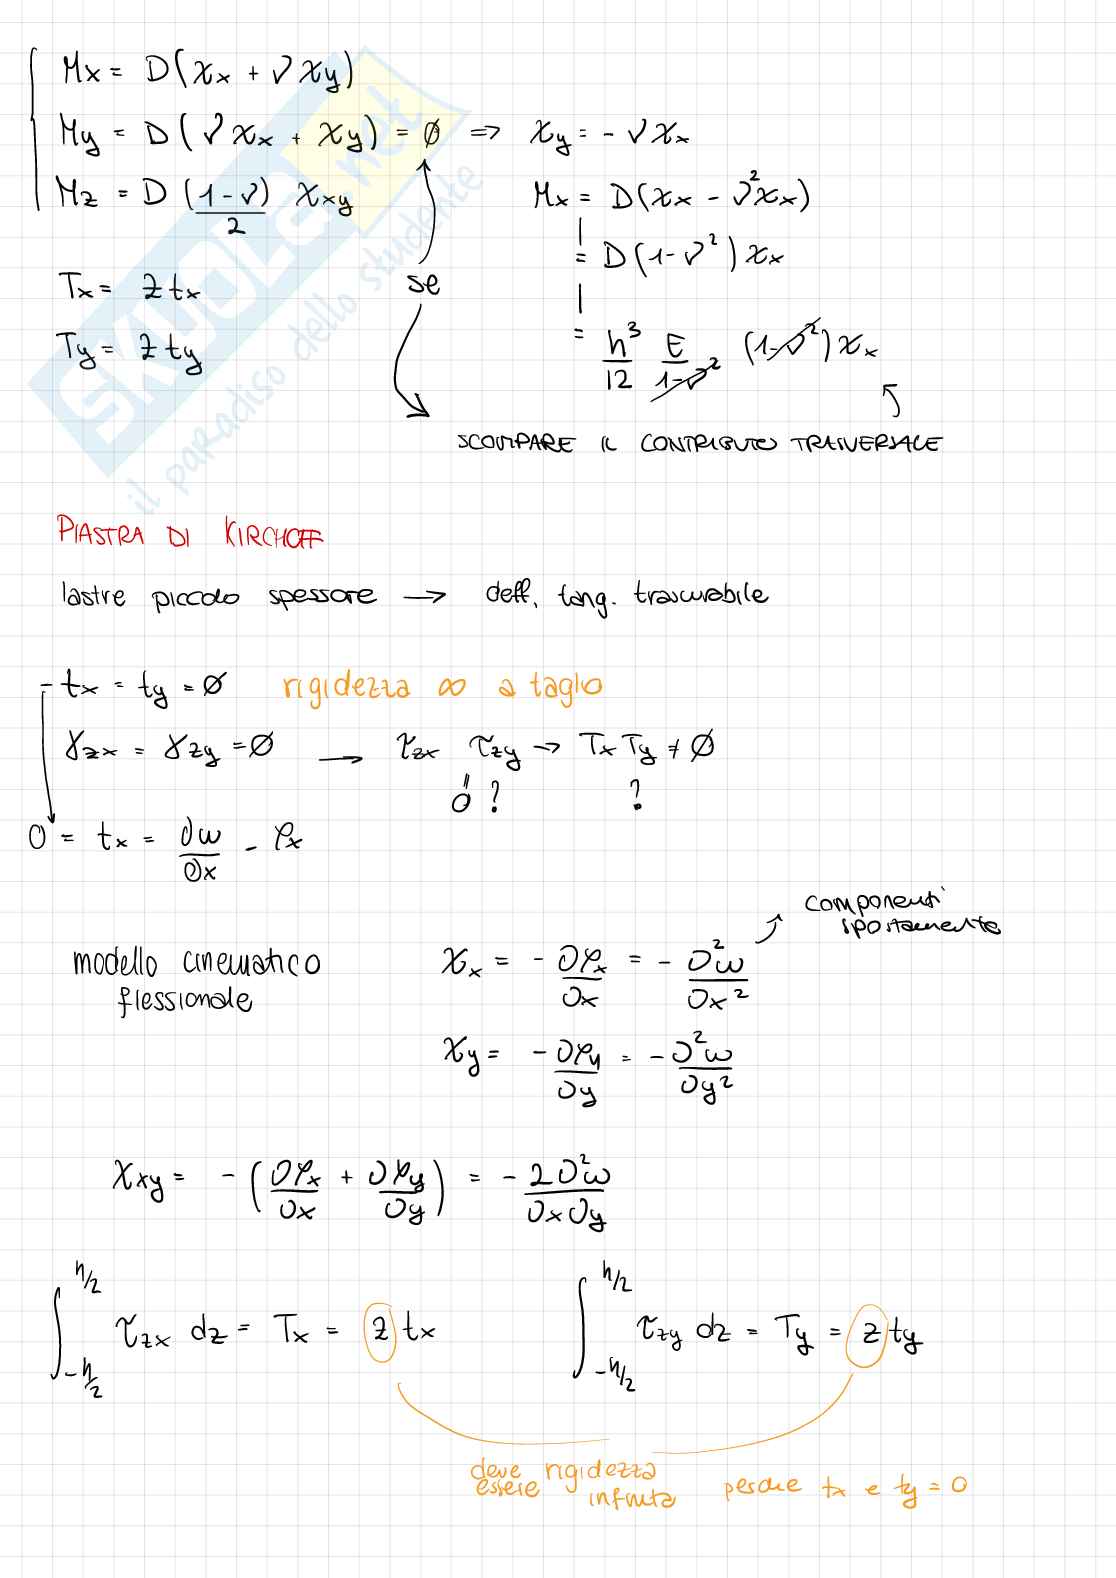 Mx = D(χx + νχy)
My = D(νχx + χy) = ∅ => χy = -νχx
Mz = D (1-ν)/2 χxy
Mx = D(χx - ν²χx)
= D(1-ν²)χx
Tx = Z tx
se
Ty = Z ty
= h³/12 E/1-ν² (1-ν²)χx
SCOMPARE IL CONTRIBUTO TRASVERSALE
SKUOLA.net
il paradiso dello studente
PIASTRA DI KIRCHOFF
lastre piccolo spessore → deff. tang. trascurabile
- tx = ty = ∅ rigidezza ∞ a taglio
γzx = γzy = ∅ → τzx τzy → Tx Ty ≠ ∅
0 ? ?
0 = tx = ∂w/∂x - φx
componenti
spostamento
modello cinematico
flessionale
χx = -∂φx/∂x = -∂²w/∂x²
χy = -∂φy/∂y = -∂²w/∂y²
χxy = -(∂φx/∂x + ∂φy/∂y) = -2∂²w/∂x∂y
∫_{-h/2}^{h/2} τzx dz = Tx = Z tx
∫_{-h/2}^{h/2} τzy dz = Ty = Z ty
deve essere rigidezza infinita perche tx e ty = 0